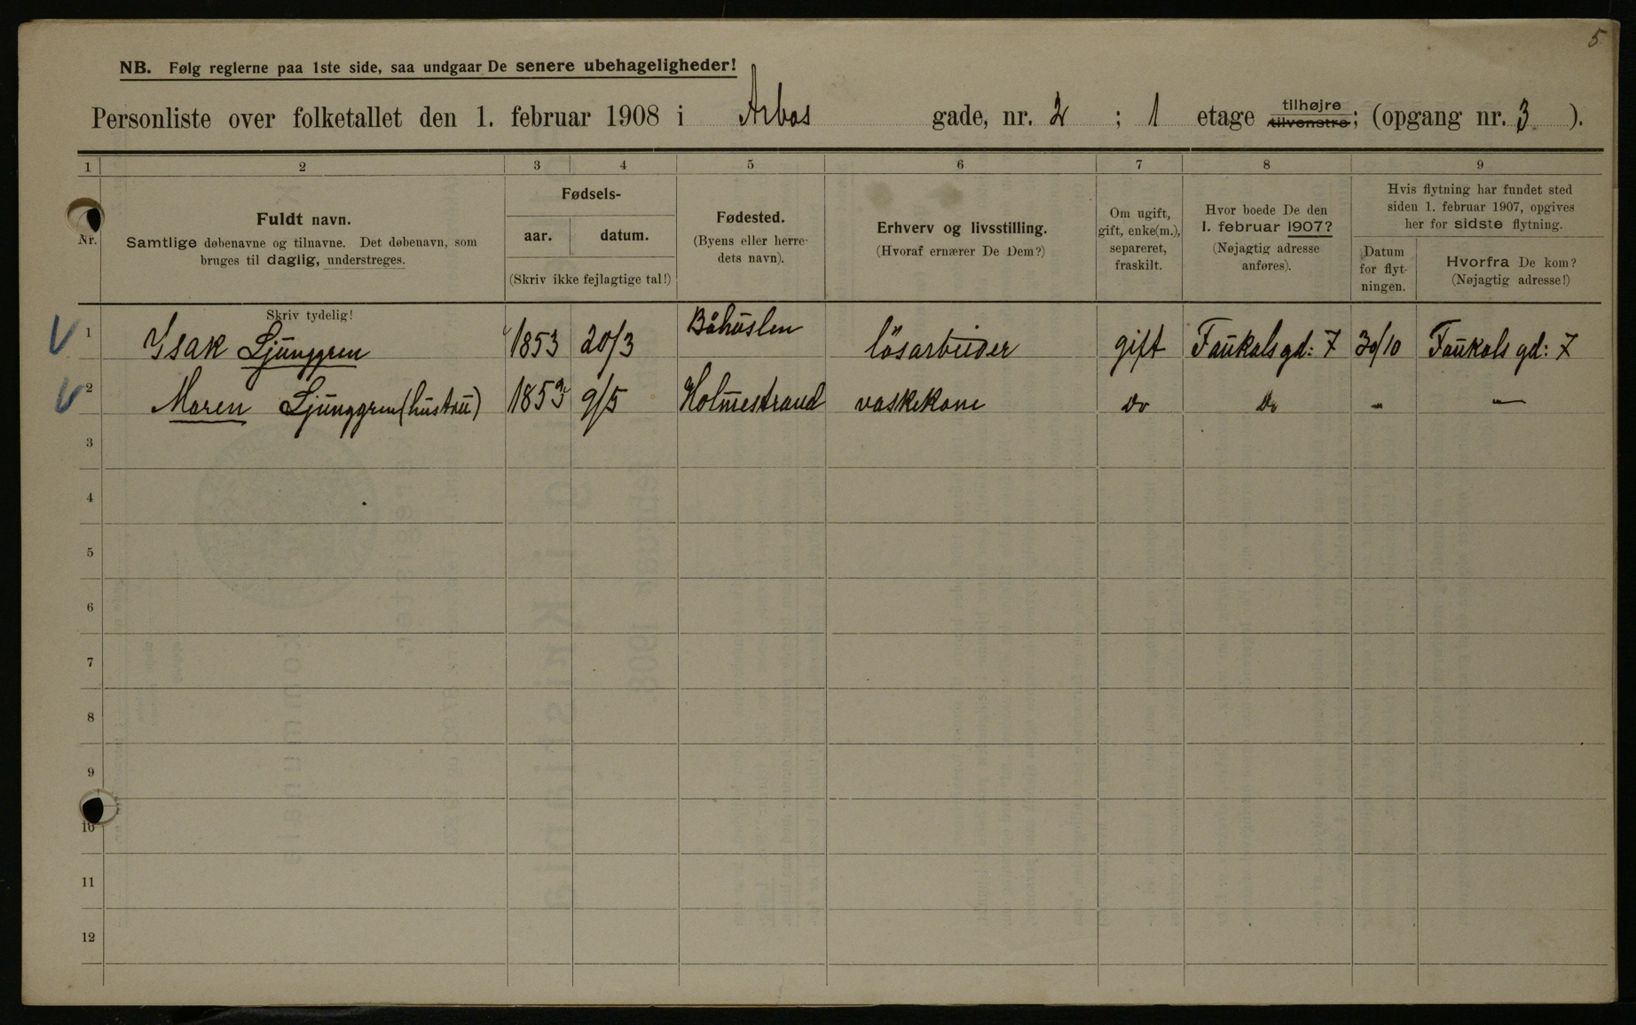 5
NB. Følg reglerne paa 1ste side, saa undgaar De senere ubehageligheder!
Personliste over folketallet den 1. februar 1908 i Arbos gade, nr. 2 ; 1 etage tilhøjre tilvenstre; (opgang nr. 3 ).
1 2 3 4 5 6 7 8 9
Nr.
Fuldt navn.
Samtlige døbenavne og tilnavne. Det døbenavn, som
bruges til daglig, understreges.
Skriv tydelig!
Fødsels-
aar. datum.
(Skriv ikke fejlagtige tal!)
Fødested.
(Byens eller herre-
dets navn).
Erhverv og livsstilling.
(Hvoraf ernærer De Dem?)
Om ugift,
gift, enke(m.),
separeret,
fraskilt.
Hvor boede De den
1. februar 1907?
(Nøjagtig adresse
anføres).
Hvis flytning har fundet sted
siden 1. februar 1907, opgives
her for sidste flytning.
Datum
for flyt-
ningen.
Hvorfra De kom?
(Nøjagtig adresse!)
1 Isak Ljunggren 1853 20/3 Båhuslen løsarbeider gift Faukalsgd: 7 30/10 Faukals gd: 7
2 Maren Ljunggren (hustru) 1853 9/5 Holmestrand vaskekone Do Do " "
3
4
5
6
7
8
9
10
11
12